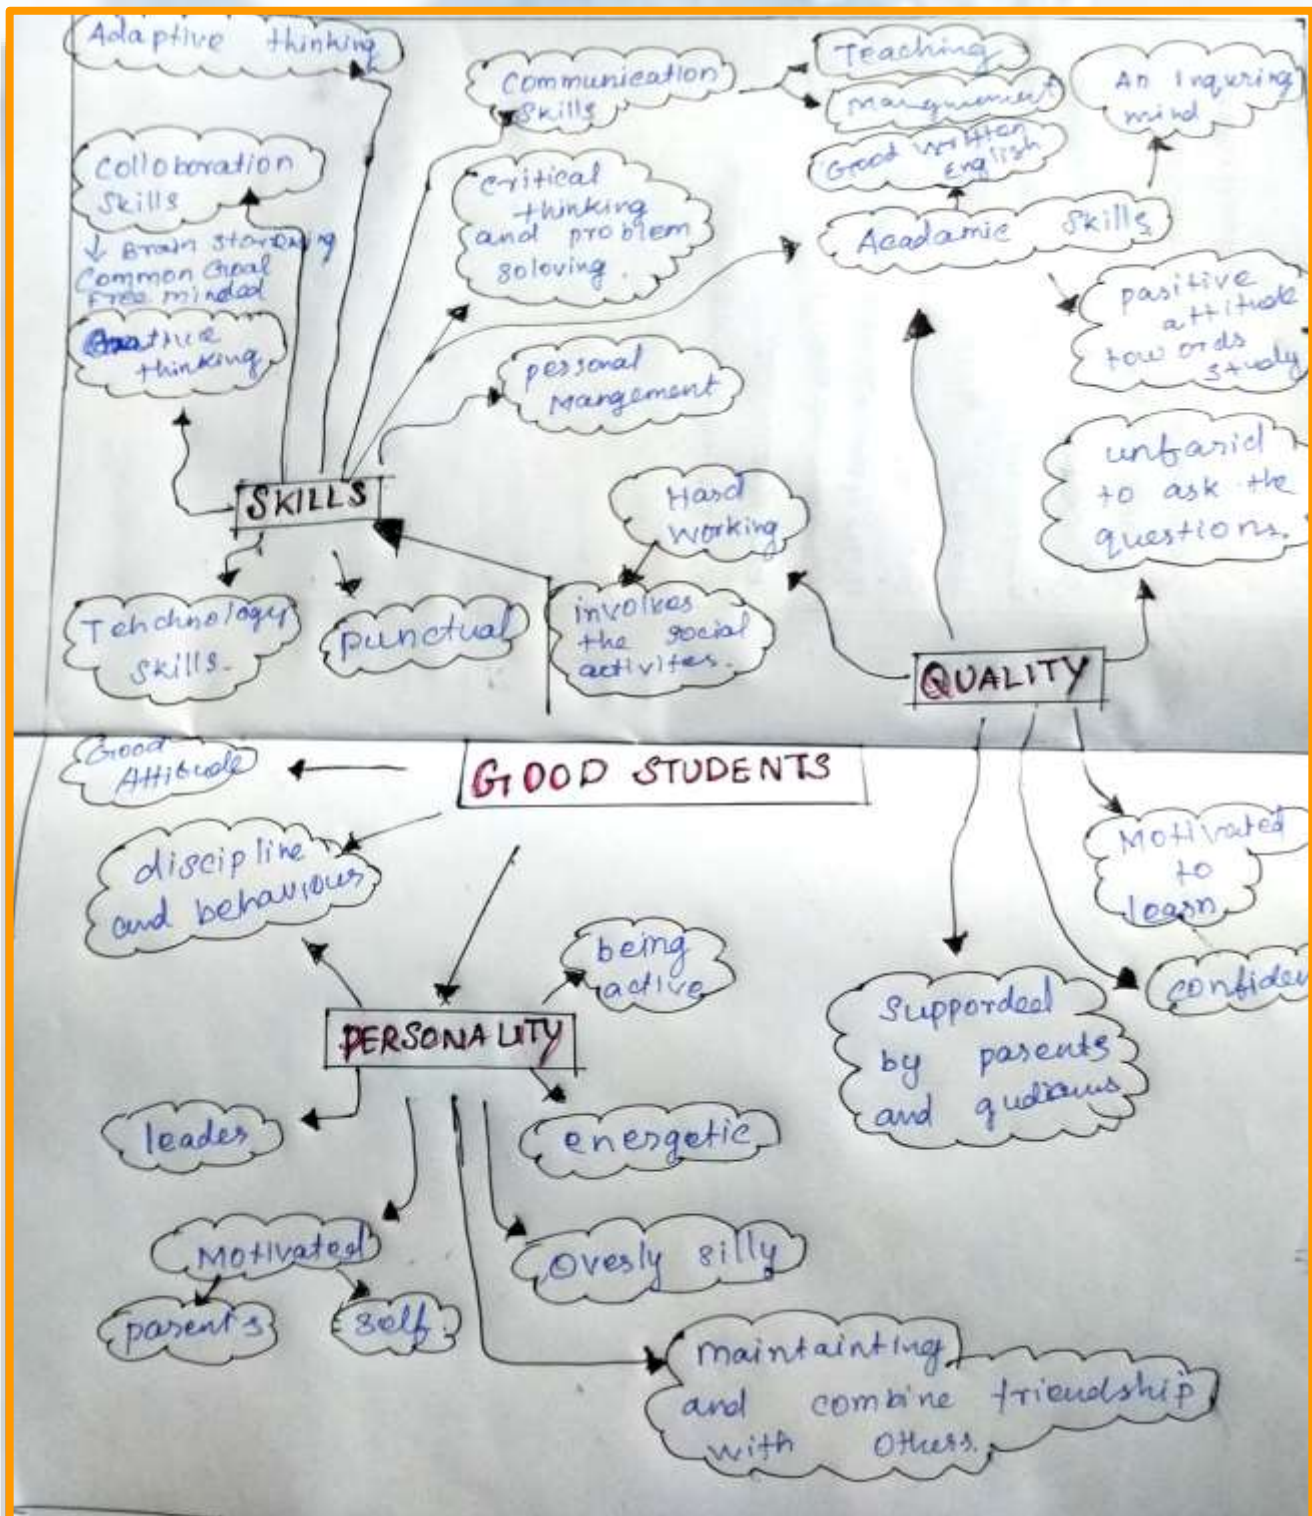 Adaptive thinking
Colloboration
Skills
↓ Brain storming
Common Goal
Free minded
thinking
Communication
Skills
Teaching
Good Written
English
An Inquring
mind
Critical
thinking
and problem
soloving.
Acadamic Skills
pasitive
attitude
towords
study
personal
Mangement
unfarid
to ask the
questions.
SKILLS
Hard
Working
Tehchnology
Skills.
punctual
involves
the social
activites.
QUALITY
Good
Attitude
GOOD STUDENTS
discipline
and behaviour
Motivated
to
learn
being
active
confiden
PERSONALITY
Supporded
by parents
and
leader
energetic
Motivated
Overly silly
parents
self
maintainting
and combine friendship
with others.